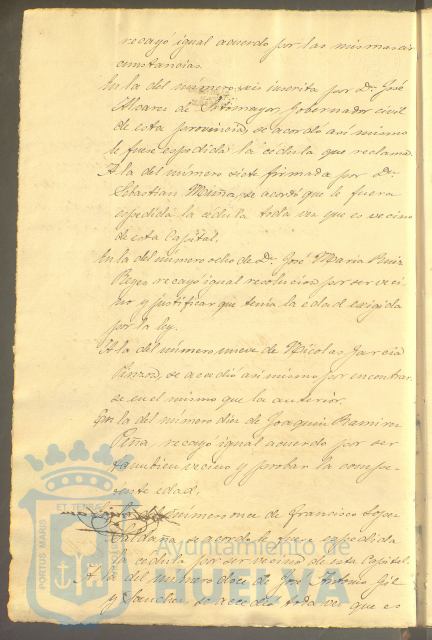 recayó igual acuerdo por las mismas cir
cunstancias.
En la del número seis inscrita por Dn. José
Alvarez de Sotomayor, Gobernador civil
de esta provincia, se acordó asi mismo
le fuese espedida la cédula que reclama.
A la del número siete firmada por Dn.
Sebastian se acordó que le fuera
espedida la cédula toda vez que es vecino
de esta Capital.
En la del número ocho de Dn. José Maria Ruiz
Reyes recayó igual resolucion por ser veci
no y justificar que tenia la edad exigida
por la ley.
A la del número nueve de Nicolas Garcia
Pinzon, se acudió asi mismo por encontrar
se en el mismo que la anterior.
En la del número diez de Joaquin Ramirez
Peña, recayó igual acuerdo por ser
tambien vecino y probar la compe-
tente edad.
número once de Francisco Lopez
Saldaña, se acordó le fuere espedida
la cédula por ser vecino de esta Capital.
A la del número doce de José Antonio Gil
y Sanchez, se accedió toda vez que es
PORTUS MARIS
Ayuntamiento de
HUELVA